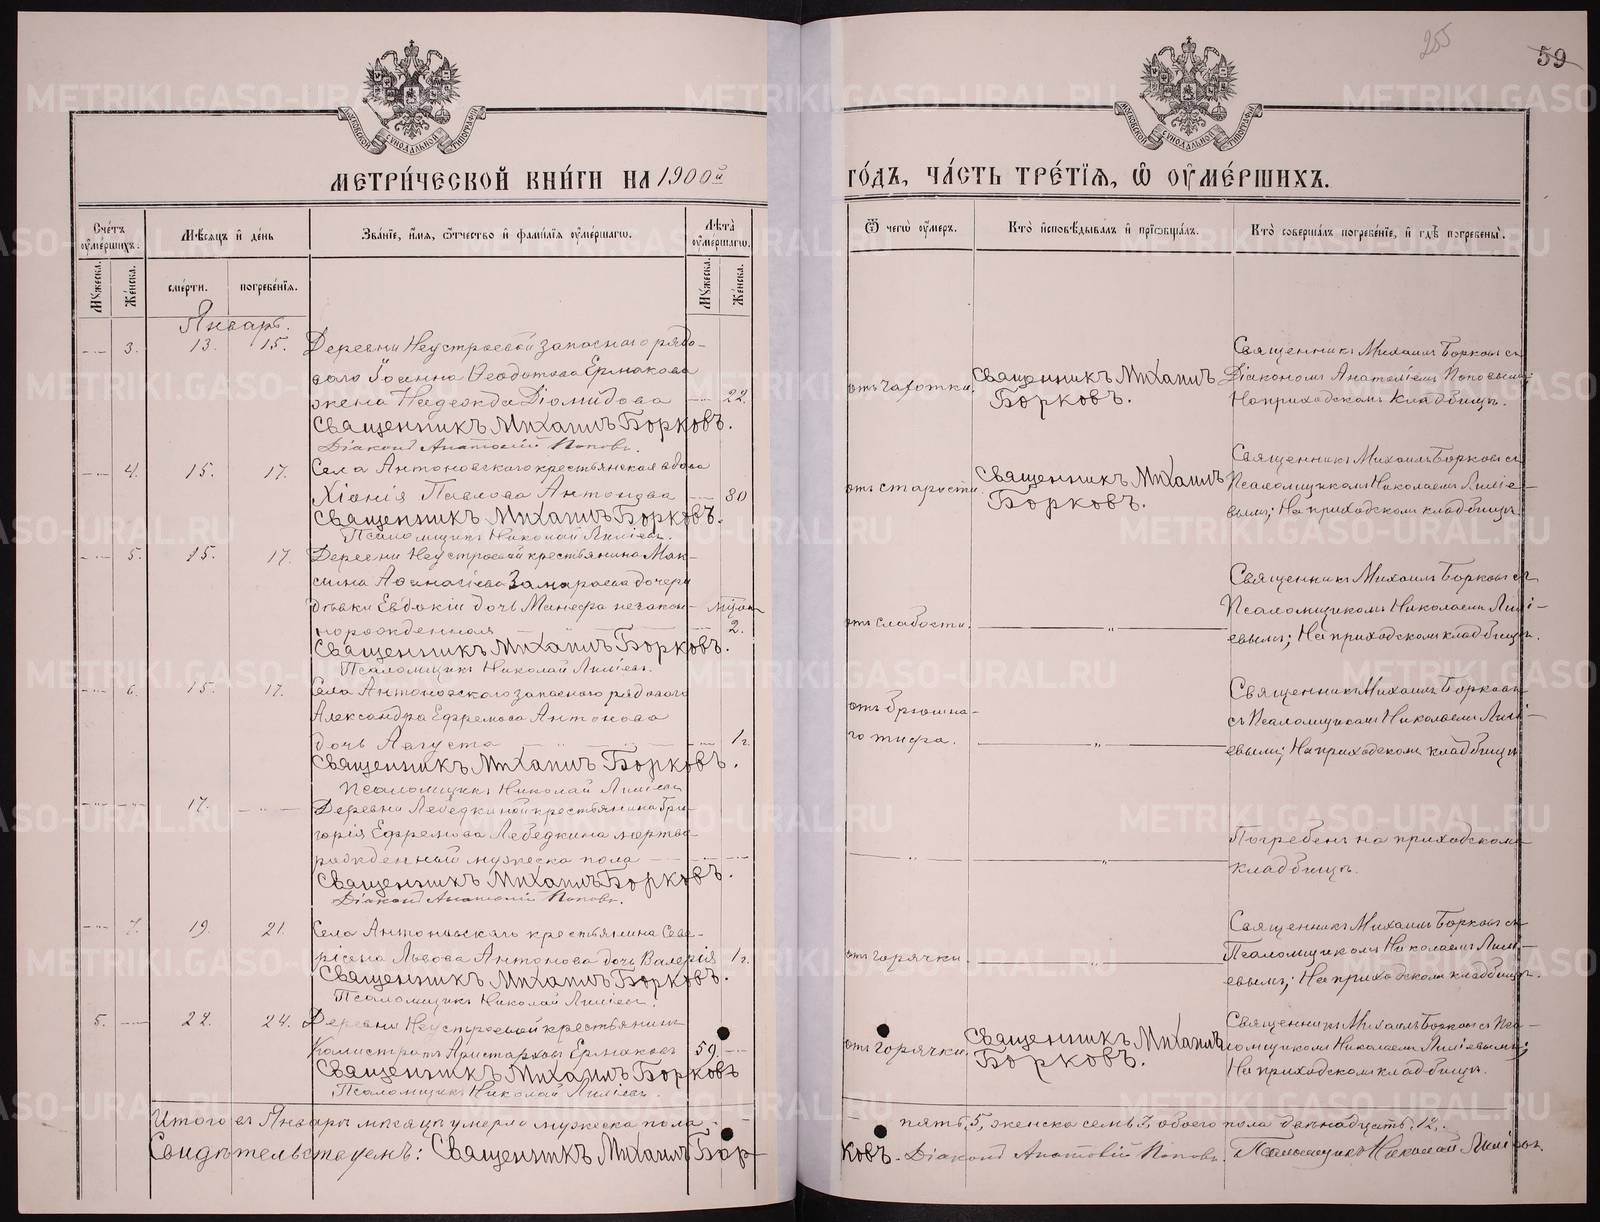 255
59
МОСКОВСКОЙ СѴНОДАЛЬНОЙ ТИПОГРАФІИ
МОСКОВСКОЙ СѴНОДАЛЬНОЙ ТИПОГРАФІИ
МЕТРИ́ЧЕСКОЙ КНИ́ГИ НА 1900й
ГО́ДЪ, ЧА́СТЬ ТРЕ́ТІѦ, Ѽ ОУМЕ́РШИХЪ.
Сче́тъ оумершихъ.
Мѣсяцъ и день
Званіе, имя, отчество и фамилія оумершагѡ.
Лѣта оумершагѡ.
Мужеска.
Женска.
смерти.
погребенія.
Мужеска.
Женска.
Ѿ чегѡ оумеръ.
Кто исповѣдывалъ и пріобщалъ.
Кто совершалъ погребеніе, и гдѣ погребены.
Январь.
3. 13. 15. Деревни Неустроевой запаснаго рядо-
ваго Іоанна Ѳеодотова Ермакова
жена Надежда Діомидова 22.
Священникъ Михаилъ Борковъ.
Діаконъ Анатолій Поповъ.
отъ чахотки.
Священникъ Михаилъ
Борковъ.
Священникъ Михаилъ Борковъ съ
Діакономъ Анатоліемъ Поповымъ;
На приходскомъ кладбищѣ.
4. 15. 17. Села Антоновскаго крестьянская вдова
Хіонія Павлова Антонова 80
Священникъ Михаилъ Борковъ.
Псаломщикъ Николай Лиліевъ.
отъ старости
Священникъ Михаилъ
Борковъ.
Священникъ Михаилъ Борковъ съ
Псаломщикомъ Николаемъ Лиліе-
вымъ; На приходскомъ кладбищѣ
5. 15. 17. Деревни Неустроевой крестьянина Мак-
сима дочери
дѣвки Евдокіи дочь незакон-
норожденная 2.
Священникъ Михаилъ Борковъ.
Псаломщикъ Николай Лиліевъ.
отъ слабости.
Священникъ Михаилъ Борковъ съ
Псаломщикомъ Николаемъ Лилі-
евымъ; На приходскомъ кладбищѣ.
6. 15. 17. Села Антоновскаго запаснаго рядоваго
Александра Ефремова Антонова
дочь Августа 1 г.
Священникъ Михаилъ Борковъ.
Псаломщикъ Николай Лиліевъ
отъ брюшна-
го тифа.
Священникъ Михаилъ Борковъ
съ Псаломщикомъ Николаемъ Лилі-
евымъ; На приходскомъ кладбищѣ
17. Деревни Лебедкиной крестьянина Гри-
горія Ефремова Лебедкина мертво-
рожденный мужеска пола
Священникъ Михаилъ Борковъ.
Діаконъ Анатолій Поповъ.
Погребенъ на приходскомъ
кладбищѣ.
7. 19. 21. Села Антоновскаго крестьянина Севе-
ріана Львова Антонова дочь Валерія 1 г.
Священникъ Михаилъ Борковъ.
Псаломщикъ Николай Лиліевъ.
отъ горячки.
Священникъ Михаилъ Борковъ съ
Псаломщикомъ Николаемъ Лилі-
евымъ; На приходскомъ кладбищѣ.
5. 22. 24. Деревни Неустроевой крестьянинъ
Калистратъ Аристарховъ Ермаковъ 59.
Священникъ Михаилъ Борковъ
Псаломщикъ Николай Лиліевъ.
отъ горячки.
Священникъ Михаилъ
Борковъ.
Священникъ Михаилъ Борковъ съ Пса-
ломщикомъ Николаемъ Лиліевымъ;
На приходскомъ кладбищѣ.
Итого въ Январѣ мѣсяцѣ умерло мужеска пола
пять, 5, женска семь 7, обоего пола двѣнадцать, 12.
Свидѣтельствуемъ: Священникъ Михаилъ Бор
ковъ. Діаконъ Анатолій Поповъ. Псаломщикъ Николай Лиліевъ.
METRIKI.GASO-URAL.RU